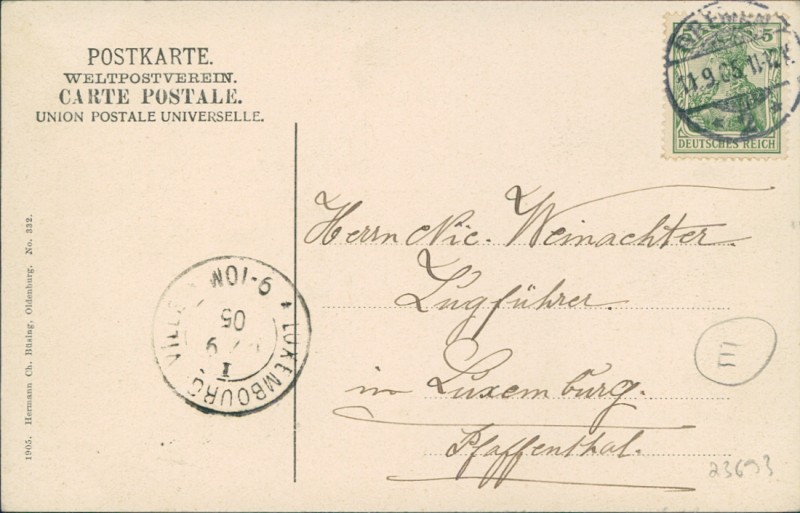 POSTKARTE.
WELTPOSTVEREIN.
CARTE POSTALE.
UNION POSTALE UNIVERSELLE.
5
DEUTSCHES REICH
BREMEN
9.05. 11-12
* 2 *
Herrn Nic. Weinachter.
Zugführer.
in Luxemburg.
Pfaffenthal.
LUXEMBOURG VILLE
9-10M
9
05
I
1905. Hermann Ch. Büsing, Oldenburg. No. 332.
23693